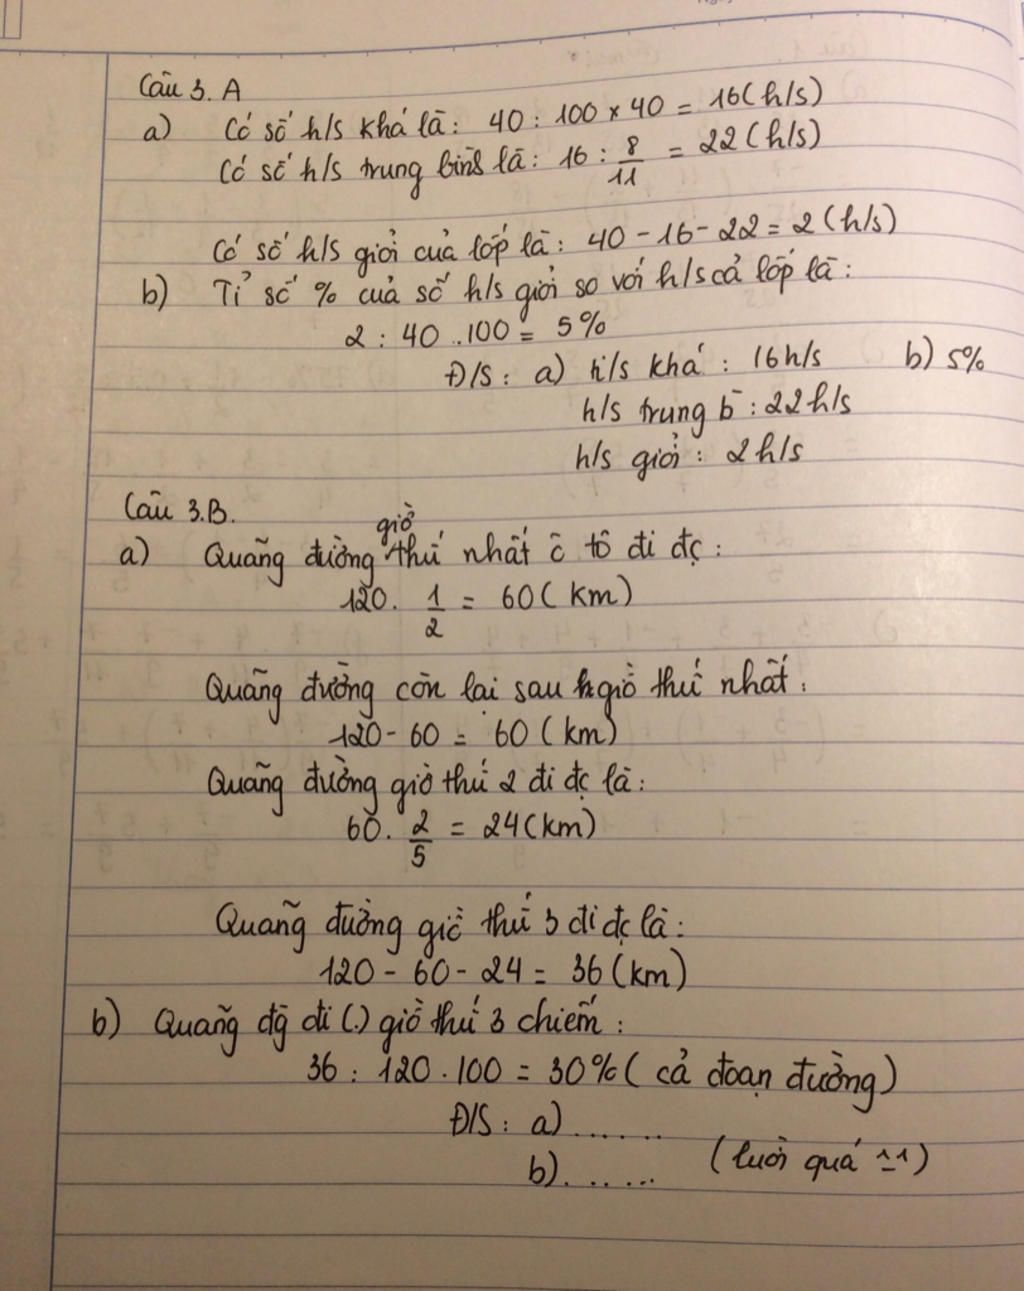 Câu 3. A
a) Có số h/s khá là: 40 : 100 x 40 = 16 (h/s)
Có số h/s trung bình là: 16 : 8/11 = 22 (h/s)
Có số h/s giỏi của lớp là: 40 - 16 - 22 = 2 (h/s)
b) Tỉ số % của số h/s giỏi so với h/s cả lớp là:
2 : 40 . 100 = 5%
Đ/S: a) h/s khá : 16 h/s b) 5%
h/s trung b̄ : 22 h/s
h/s giỏi : 2 h/s
Câu 3.B.
giờ
a) Quãng đường thứ nhất ô tô đi đc :
120 . 1/2 = 60 (km)
Quãng đường còn lại sau giờ thứ nhất :
120 - 60 = 60 (km)
Quãng đường giờ thứ 2 đi đc là :
60 . 2/5 = 24 (km)
Quãng đường giờ thứ 3 đi đc là :
120 - 60 - 24 = 36 (km)
b) Quãng đg đi (.) giờ thứ 3 chiếm :
36 : 120 . 100 = 30% ( cả đoạn đường)
Đ/S : a) ......
b) ...... (lười quá ^-^)